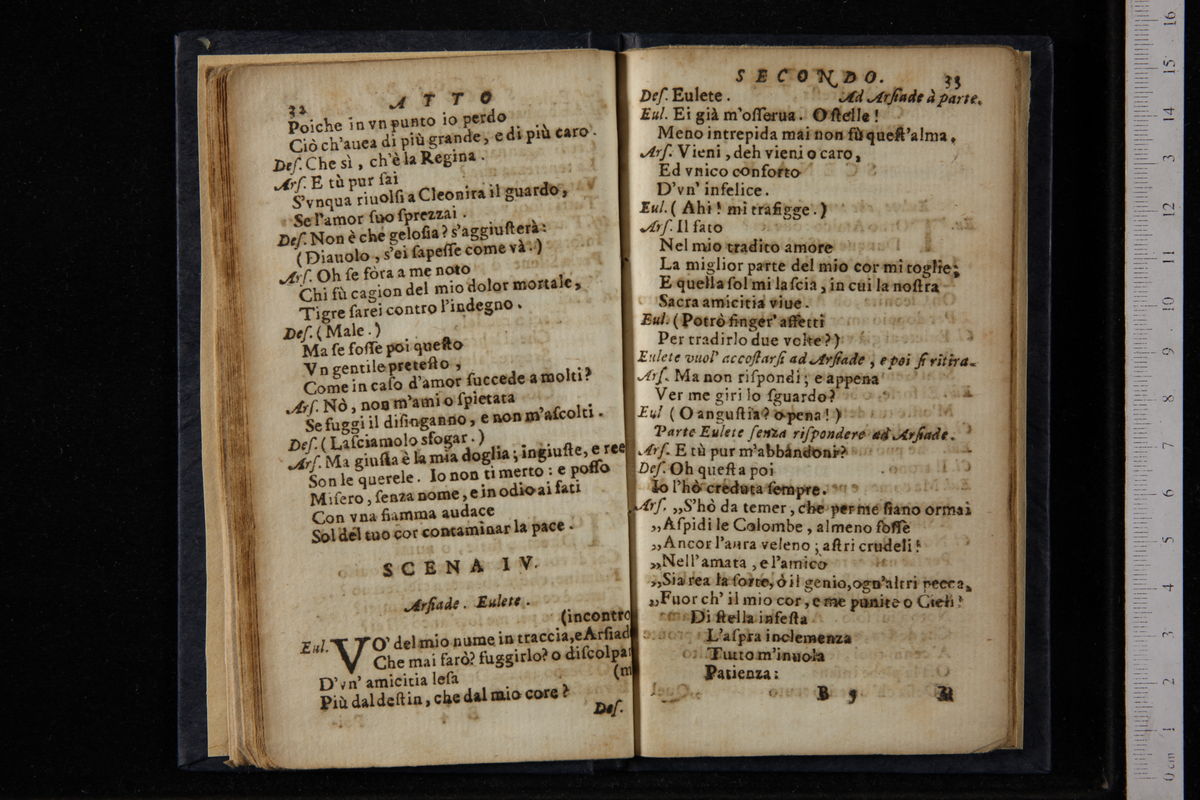 32
ATTO
Poiche in vn punto io perdo
Ciò ch'auea di più grande, e di più caro.
Des. Che sì, ch'è la Regina.
Ars. E tù pur sai
S'vnqua riuolsi a Cleonira il guardo,
Se l'amor suo sprezzai.
Des. Non è che gelosia? s'aggiusterà:
(Diauolo, s'ei sapesse come và.)
Ars. Oh se fòra a me noto
Chi fù cagion del mio dolor mortale,
Tigre sarei contro l'indegno.
Des. (Male.)
Ma se fosse poi questo
Vn gentile pretesto,
Come in caso d'amor succede a molti?
Ars. Nò, non m'ami o spietata
Se fuggi il disinganno, e non m'ascolti.
Des. (Lasciamolo sfogar.)
Ars. Ma giusta è la mia doglia; ingiuste, e ree
Son le querele. Io non ti merto: e posso
Misero, senza nome, e in odio ai fati
Con vna fiamma audace
Sol del tuo cor contaminar la pace.
SCENA IV.
Arsiade. Eulete.
(incontro
Eul. VO' del mio nume in traccia, e Arsiad
Che mai farò? fuggirlo? o discolpar
D'vn' amicitia lesa (m
Più dal destin, che dal mio core?
Des.
SECONDO. 33
Des. Eulete. Ad Arsiade à parte.
Eul. Ei già m'osserua. O stelle!
Meno intrepida mai non fù quest'alma.
Ars. Vieni, deh vieni o caro,
Ed vnico conforto
D'vn' infelice.
Eul. (Ahi! mi trafigge.)
Ars. Il fato
Nel mio tradito amore
La miglior parte del mio cor mi toglie;
E quella sol mi lascia, in cui la nostra
Sacra amicitia viue.
Eul. (Potrò finger' affetti
Per tradirlo due volte?)
Eulete vuol' accostarsi ad Arsiade, e poi si ritira.
Ars. Ma non rispondi; e appena
Ver me giri lo sguardo?
Eul (O angustia? o pena!)
Parte Eulete senza rispondere ad Arsiade.
Ars. E tù pur m'abbandoni?
Des. Oh questa poi
Io l'hò creduta sempre.
Ars. „S'hò da temer, che per me siano ormai
„Aspidi le Colombe, almeno fosse
„Ancor l'aura veleno; astri crudeli!
„Nell'amata, e l'amico
„Sia rea la sorte, ó il genio, ogn'altri pecca,
„Fuor ch' il mio cor, e me punite o Cieli!
Di stella infesta
L'aspra inclemenza
Tutto m'inuola
Patienza:
B 5